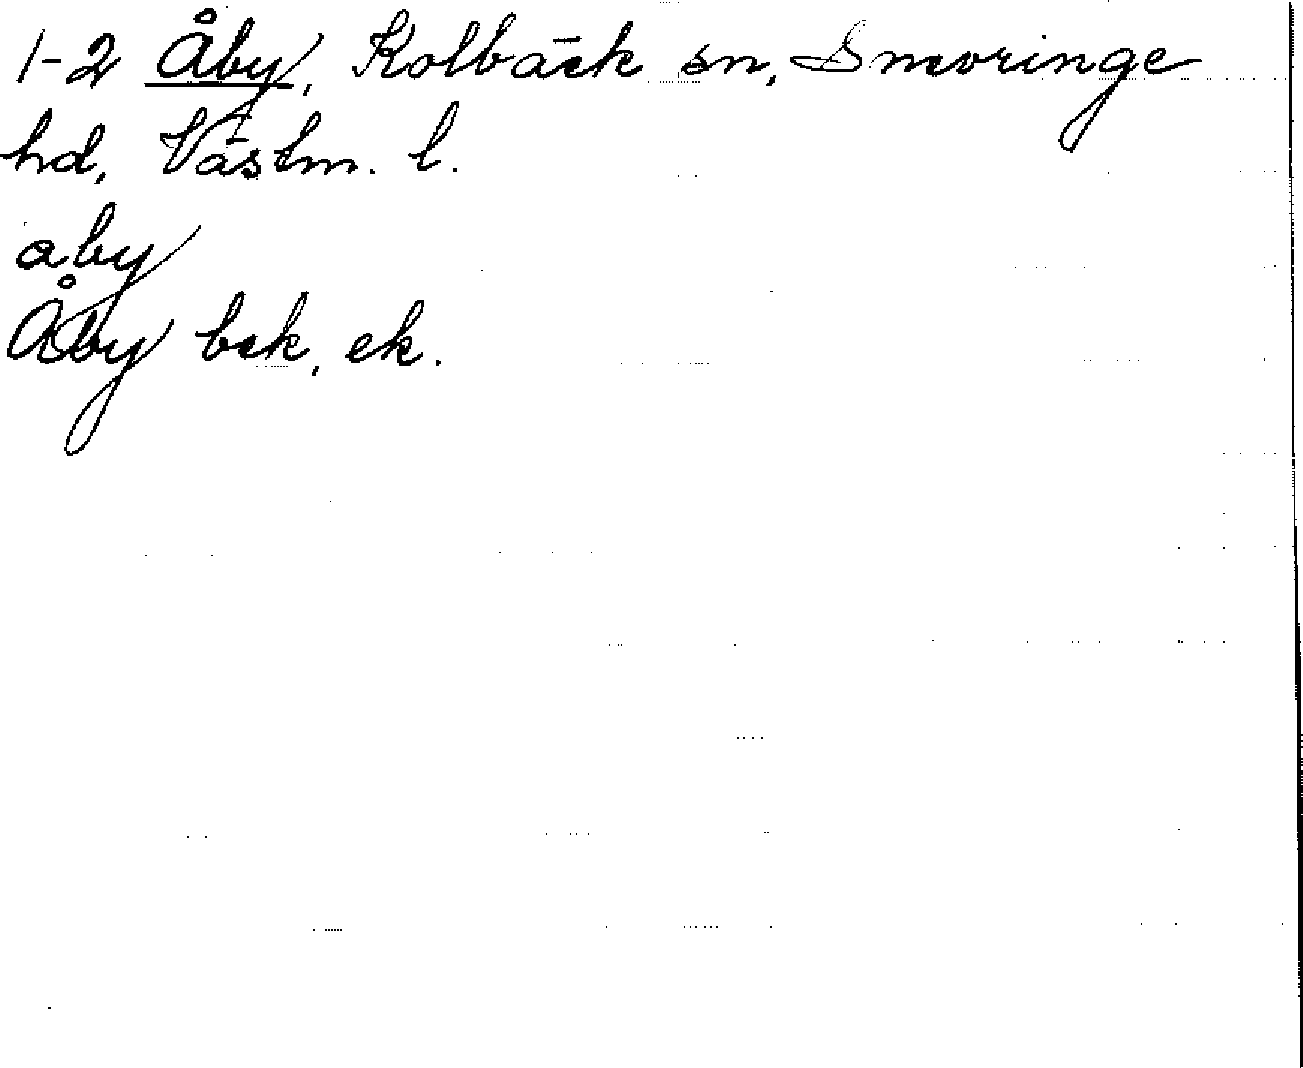 1-2 Åby, Kolbäck sn, Snevringe
hd, Västm. l.
aby
Åby bek, ek.